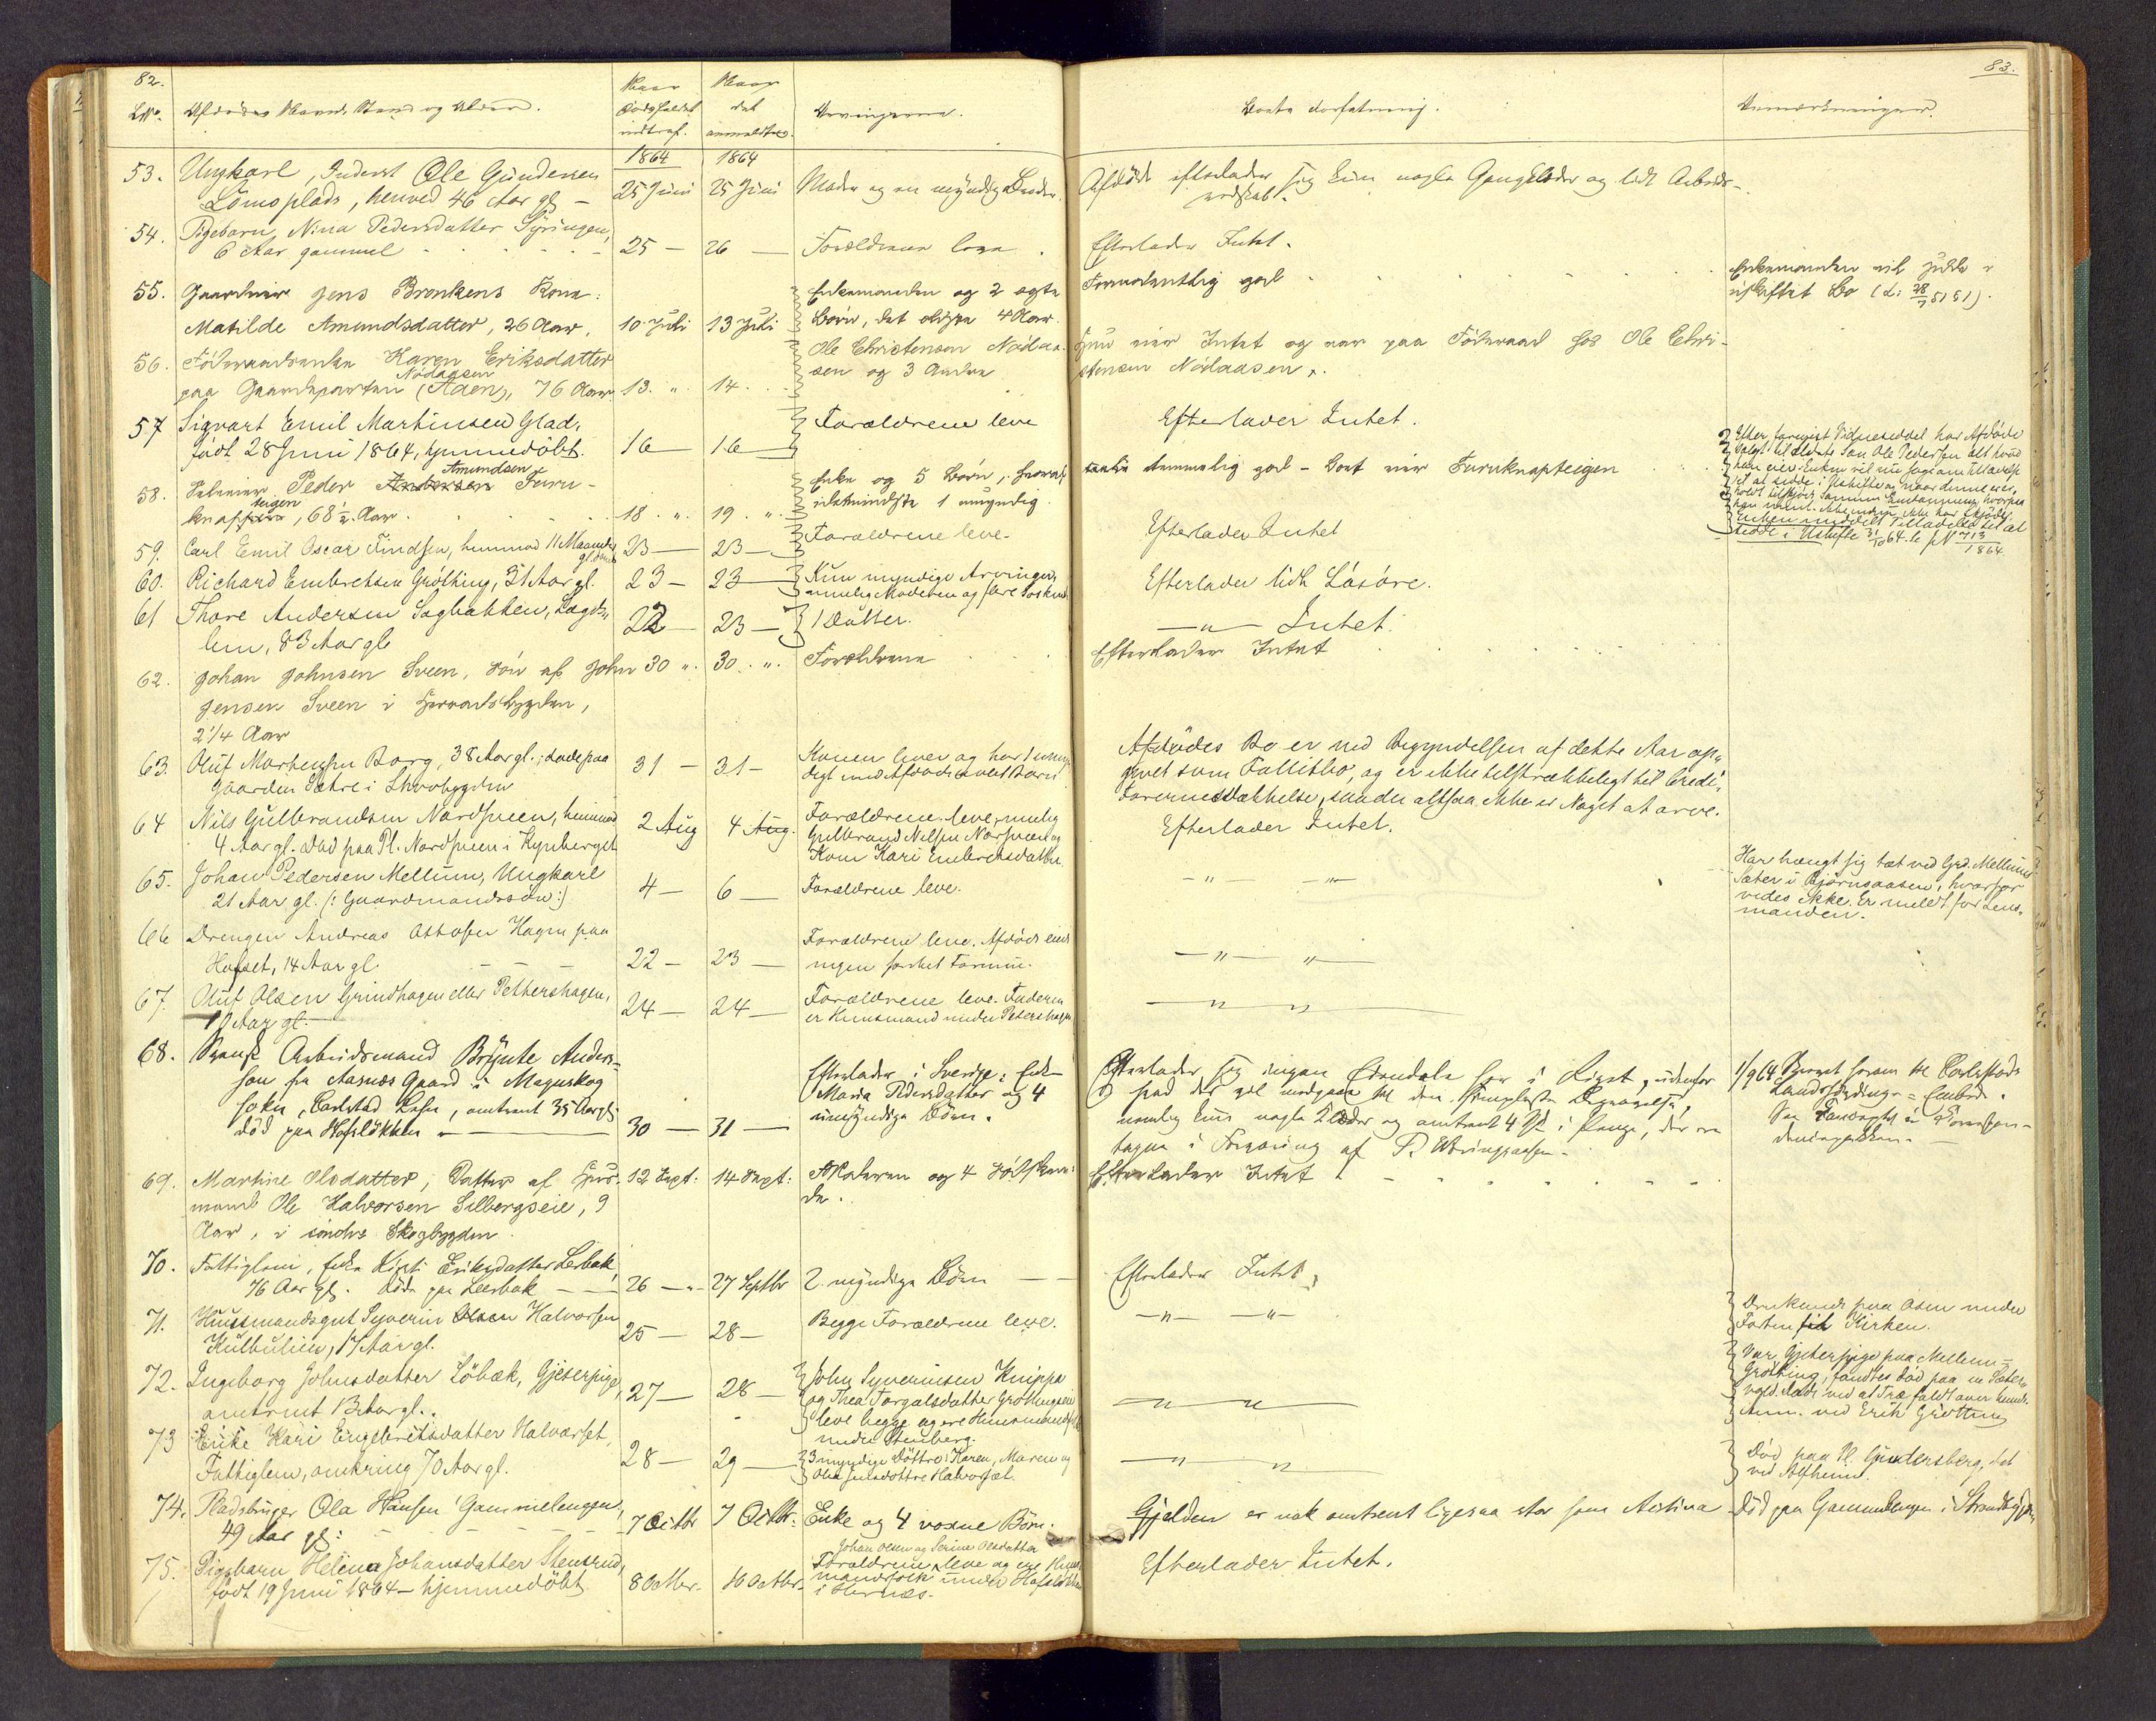 82.
83.
LNo. Afdødes Navn, Stand og Alder. Naar Dødsfaldet indtraf. Naar det anmeldtes. Arvingerne. Boets Forfatning. Anmærkninger.
1864 1864
53. Ungkarl, Inderst Ole Gundersen 25 Juni 25 Juni Moder og en myndig Broder. Afdøde efterlader sig kun nogle Gangklæder og lidt Arbeids-
Lömoplads, henved 46 Aar gl – redskab.
54. Pigebarn, Nina Pedersdatter Syringen,
6 Aar gammel 25 – 26 – Forældrene leve. Efterlader Intet.
55. Gaardeier Jens Bronkens Kone: Enkemanden og 2 ægte Formodentlig god Enkemanden vil sidde i
Matilde Amundsdatter, 26 Aar. 10 Juli 13 Juli Børn, det ældste 4 Aar. uskiftet Bo
56. Föderaadsenke Karen Eriksdatter Ole Christensen Nödaa- Hun eier Intet og var paa Föderaad hos Ole Chri-
Nödaasen
paa Gaardeparten (Aaen), 76 Aar 13. " 14. sen og 3 Andre stensen Nödaasen.
57 Sigvart Emil Martinsen Glad, Forældrene leve Efterlader Intet.
født 28 Juni 1864, hjemmedöbt. 16 – 16 –
Efter foreviist Vidneseddel har Afdøde
solgt til ældste Søn Ole Pedersen alt hvad
Amundsen
58. Selveier Peder Andersen Furu- Enke og 5 Børn, hvoraf temmelig god – Boet eier Furuknapteigen
teigen
knappen, 68 1/2 Aar. 18. " 19. " idetmindste 1 umyndig.
Enken meddelt Tilladelse til at
sidde i Uskifte
59. Carl Emil Oscar Findsen, henimod 11 Maaneder 23 – 23 – Forældrene leve. Efterlader Intet
60. Richard Embretsen Gröthing, 31 Aar gl. 23 – 23 – Kun myndige Arvinger, Efterlader lidt Løsøre.
nemlig Moderen og flere Søskend
61 Thore Andersen Sagbakken, Lægds- 22 – 23 – 1 Datter. –"– Intet.
lem, 83 Aar gl
62. Johan Johnsen Sveen, Søn af John 30 " 30. " Forældrene Efterlader Intet
Jensen Sveen i Hervaldsbygden,
2 1/4 Aar
63. Oluf Mortensen Borg, 38 Aar gl., døde paa 31 – 31 – Konen lever og har 1 umyn- Afdødes Bo er ved Begyndelsen af dette Aar op-
Gaarden Sætre i Skovbygden digt med Afdøde avlet Barn givet som Fallitbo, og er ikke tilstrækkeligt til Kredi-
torernes Dækkelse, saa der altsaa ikke er Noget at arve.
64 Nils Gulbrandsen Nordsveen, henimod 2 Aug 4 Aug. Forældrene leve, nemlig Efterlader Intet.
4 Aar gl. Død paa Pl. Nordsveen i Kynberget Gulbrand Nilsen Norsveen og
Kone Kari Embretsdatter
65. Johan Pedersen Mellum, Ungkarl 4 – 6 – Forældrene leve. –"– –"– Har hængt sig tæt ved Grd. Mellums
21 Aar gl. (: Gaardmandssøn :) Sæter i Bjørnsaasen, hvorfor
vides ikke. Er meldt for Lens-
manden.
66 Drengen Andreas Ottosen Hagen paa Forældrene leve. Afdøde eied
Hofset, 14 Aar gl. 22 – 23 – ingen særskilt Formue. –"– "–
67. Oluf Olsen Grindhagen eller Pettershagen, 24 – 24 – Forældrene leve. Faderen – " "
10 Aar gl. er Huusmand under Petershagen
68. Svensk Arbeidsmand Brynte Anders- Efterlader i Sverige: Enke Efterlader sig ingen Eiendele her i Riget, udenfor
son fra Aasnæs Gaard i Magnskog Maria Pedersdatter og 4 hvad der vil medgaa til den simpleste Begravelse,
sokn, Carlstad Lehn, omtrent 35 Aar gl. umyndige Børn. nemlig kun nogle Klæder og omtrent 4 Sp i Penge, der ere
død paa Hofsløkken 30 – 31 – tagne i Forvaring af
1/9 64 Brevet herom til Carlstads
Landshövdinge-Embede.
69. Martine Olsdatter, Datter af Huus- 12 Sept: 14 Sept: Moderen og 4 Helsøsken- Efterlader Intet
mand Ole Halvorsen Silbergseie, 9 de.
Aar, i søndre Skogbygden
70. Fattiglem, Enke Kirsti Eriksdatter Lerbak,
76 Aar gl. død paa Leerbak 26 – 27 Septbr 2 myndige Børn – Efterlader Intet,
71. Huusmandsgut Syverin Olsen Halvorsen 25 – 28 – Begge Forældrene leve. –"– –"– Druknede paa Osen under
Kulbulien, 17 Aar gl. Farten til Kirken.
72. Ingeborg Johnsdatter Löbæk, Gjeterpige, 27 – 28 – John Syverinsen Knippa – " " Var Gjeterpige paa Mellem-
omtrent 13 Aar gl. og Thea Torgalsdatter Grøttingseie Grøtting, fandtes død paa en Sæter-
leve begge og ere Huusmandsfolk vold. Døde ved at Træ faldt over hende.
under Stenberg. Anm. ved Erik Grøtting
73 Enke Kari Engebretsdatter Halvorset, 28 – 29 – 3 myndige Døttre: Karen, Maren og – " " Død paa Pl. Gundersberg, det
Fattiglem, omkring 70 Aar gl. Olia Jensdøttre Halvorset. ved Alfheim.
74. Pladsbruger Ola Hansen Gammelengen, 7 Octbr 7 Octbr: Enke og 4 voxne Börn. Gjelden er nok omtrent ligesaa stor som Activa Död paa Gammelengen i Strandbygden
49 Aar gl:
Johan Olsen og Serine Olsdatter
75. Pigebarn Helena Johansdatter Stensrud, 8 Octbr. 10 Octbr. Forældrene leve og ere Huus- Efterlader Intet.
født 19 Juni 1864 – hjemmedöbt mandsfolk under Hofsløkken
i Hernæs.